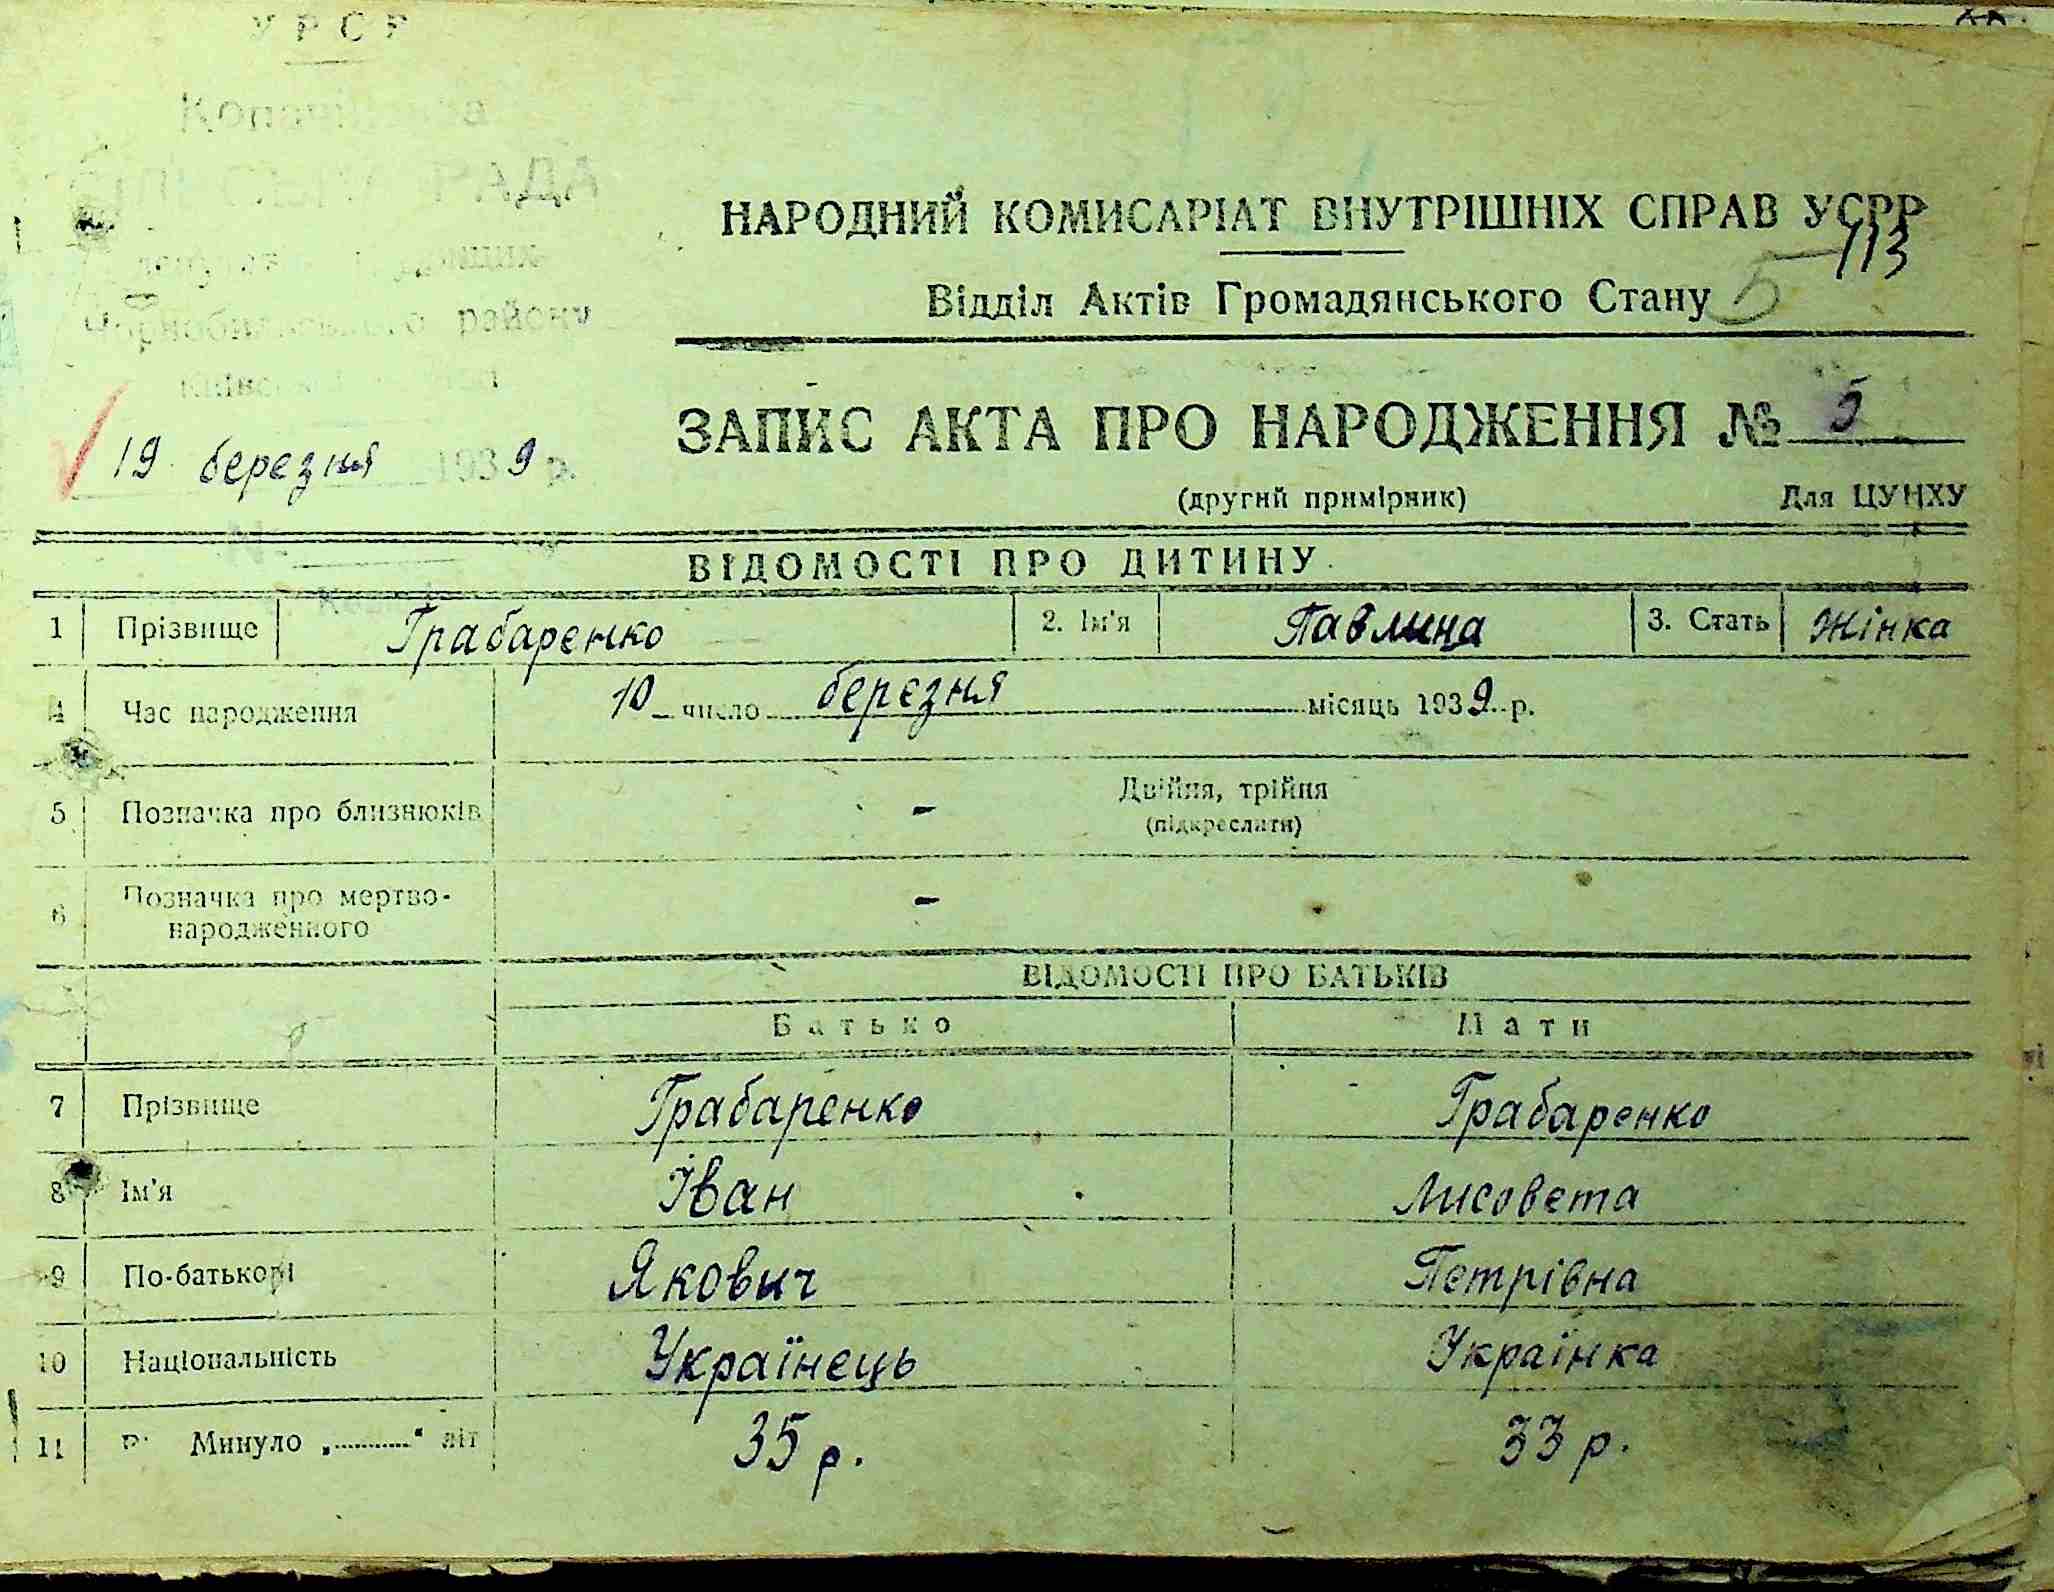 УРСР
РАДА
району
19 березня 1939 р.
НАРОДНИЙ КОМИСАРІАТ ВНУТРІШНІХ СПРАВ УСРР
113
Відділ Актів Громадянського Стану 5
ЗАПИС АКТА ПРО НАРОДЖЕННЯ № 5
(другий примірник) Для ЦУНХУ
ВІДОМОСТІ ПРО ДИТИНУ
1 Прізвище Грабаренко 2. Ім'я Павлина 3. Стать Жінка
4 Час народження 10 число березня місяць 1939 р.
5 Позначка про близнюків - Двійня, трійня
(підкреслити)
6 Позначка про мертво-
народженного -
ВІДОМОСТІ ПРО БАТЬКІВ
Батько Мати
7 Прізвище Грабаренко Грабаренко
8 Ім'я Іван Лисовета
9 По-батькові Якович Петрівна
10 Національність Українець Українка
11 Минуло „..........“ літ 35 р. 33 р.